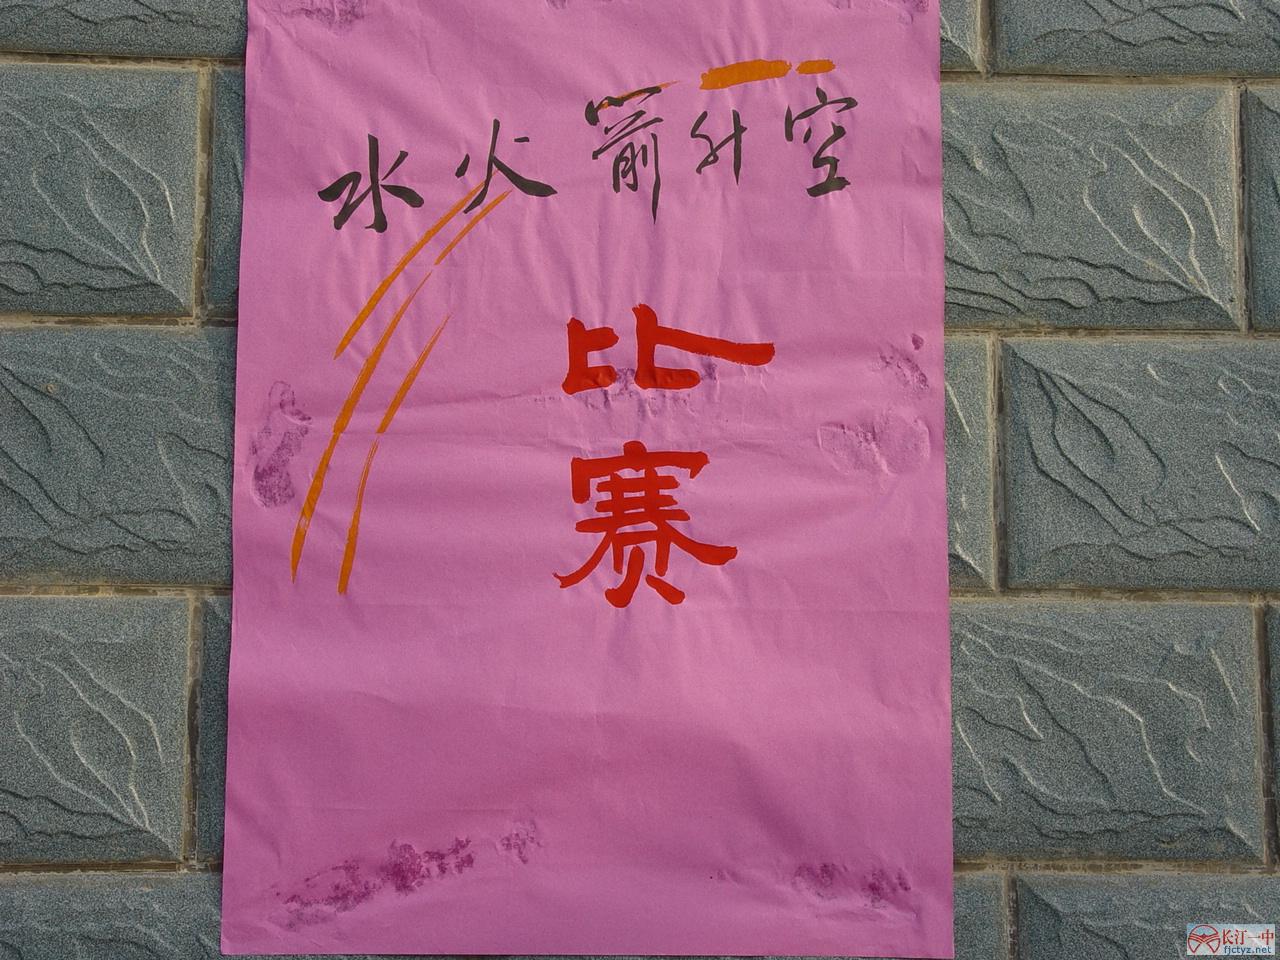 水火箭升空
比
赛
长汀一中
fjctyz.net